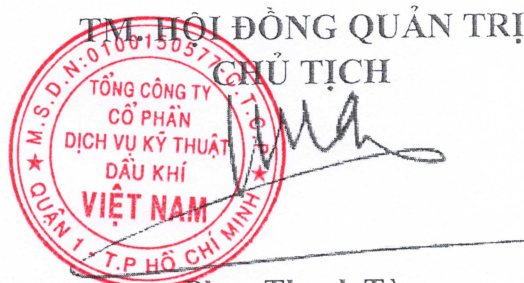 TM. HỘI ĐỒNG QUẢN TRỊ
CHỦ TỊCH
M.S.D.N:0100150577-C.T.C.P
TỔNG CÔNG TY
CỔ PHẦN
DỊCH VỤ KỸ THUẬT
DẦU KHÍ
VIỆT NAM
QUẬN 1 - T.P HỒ CHÍ MINH